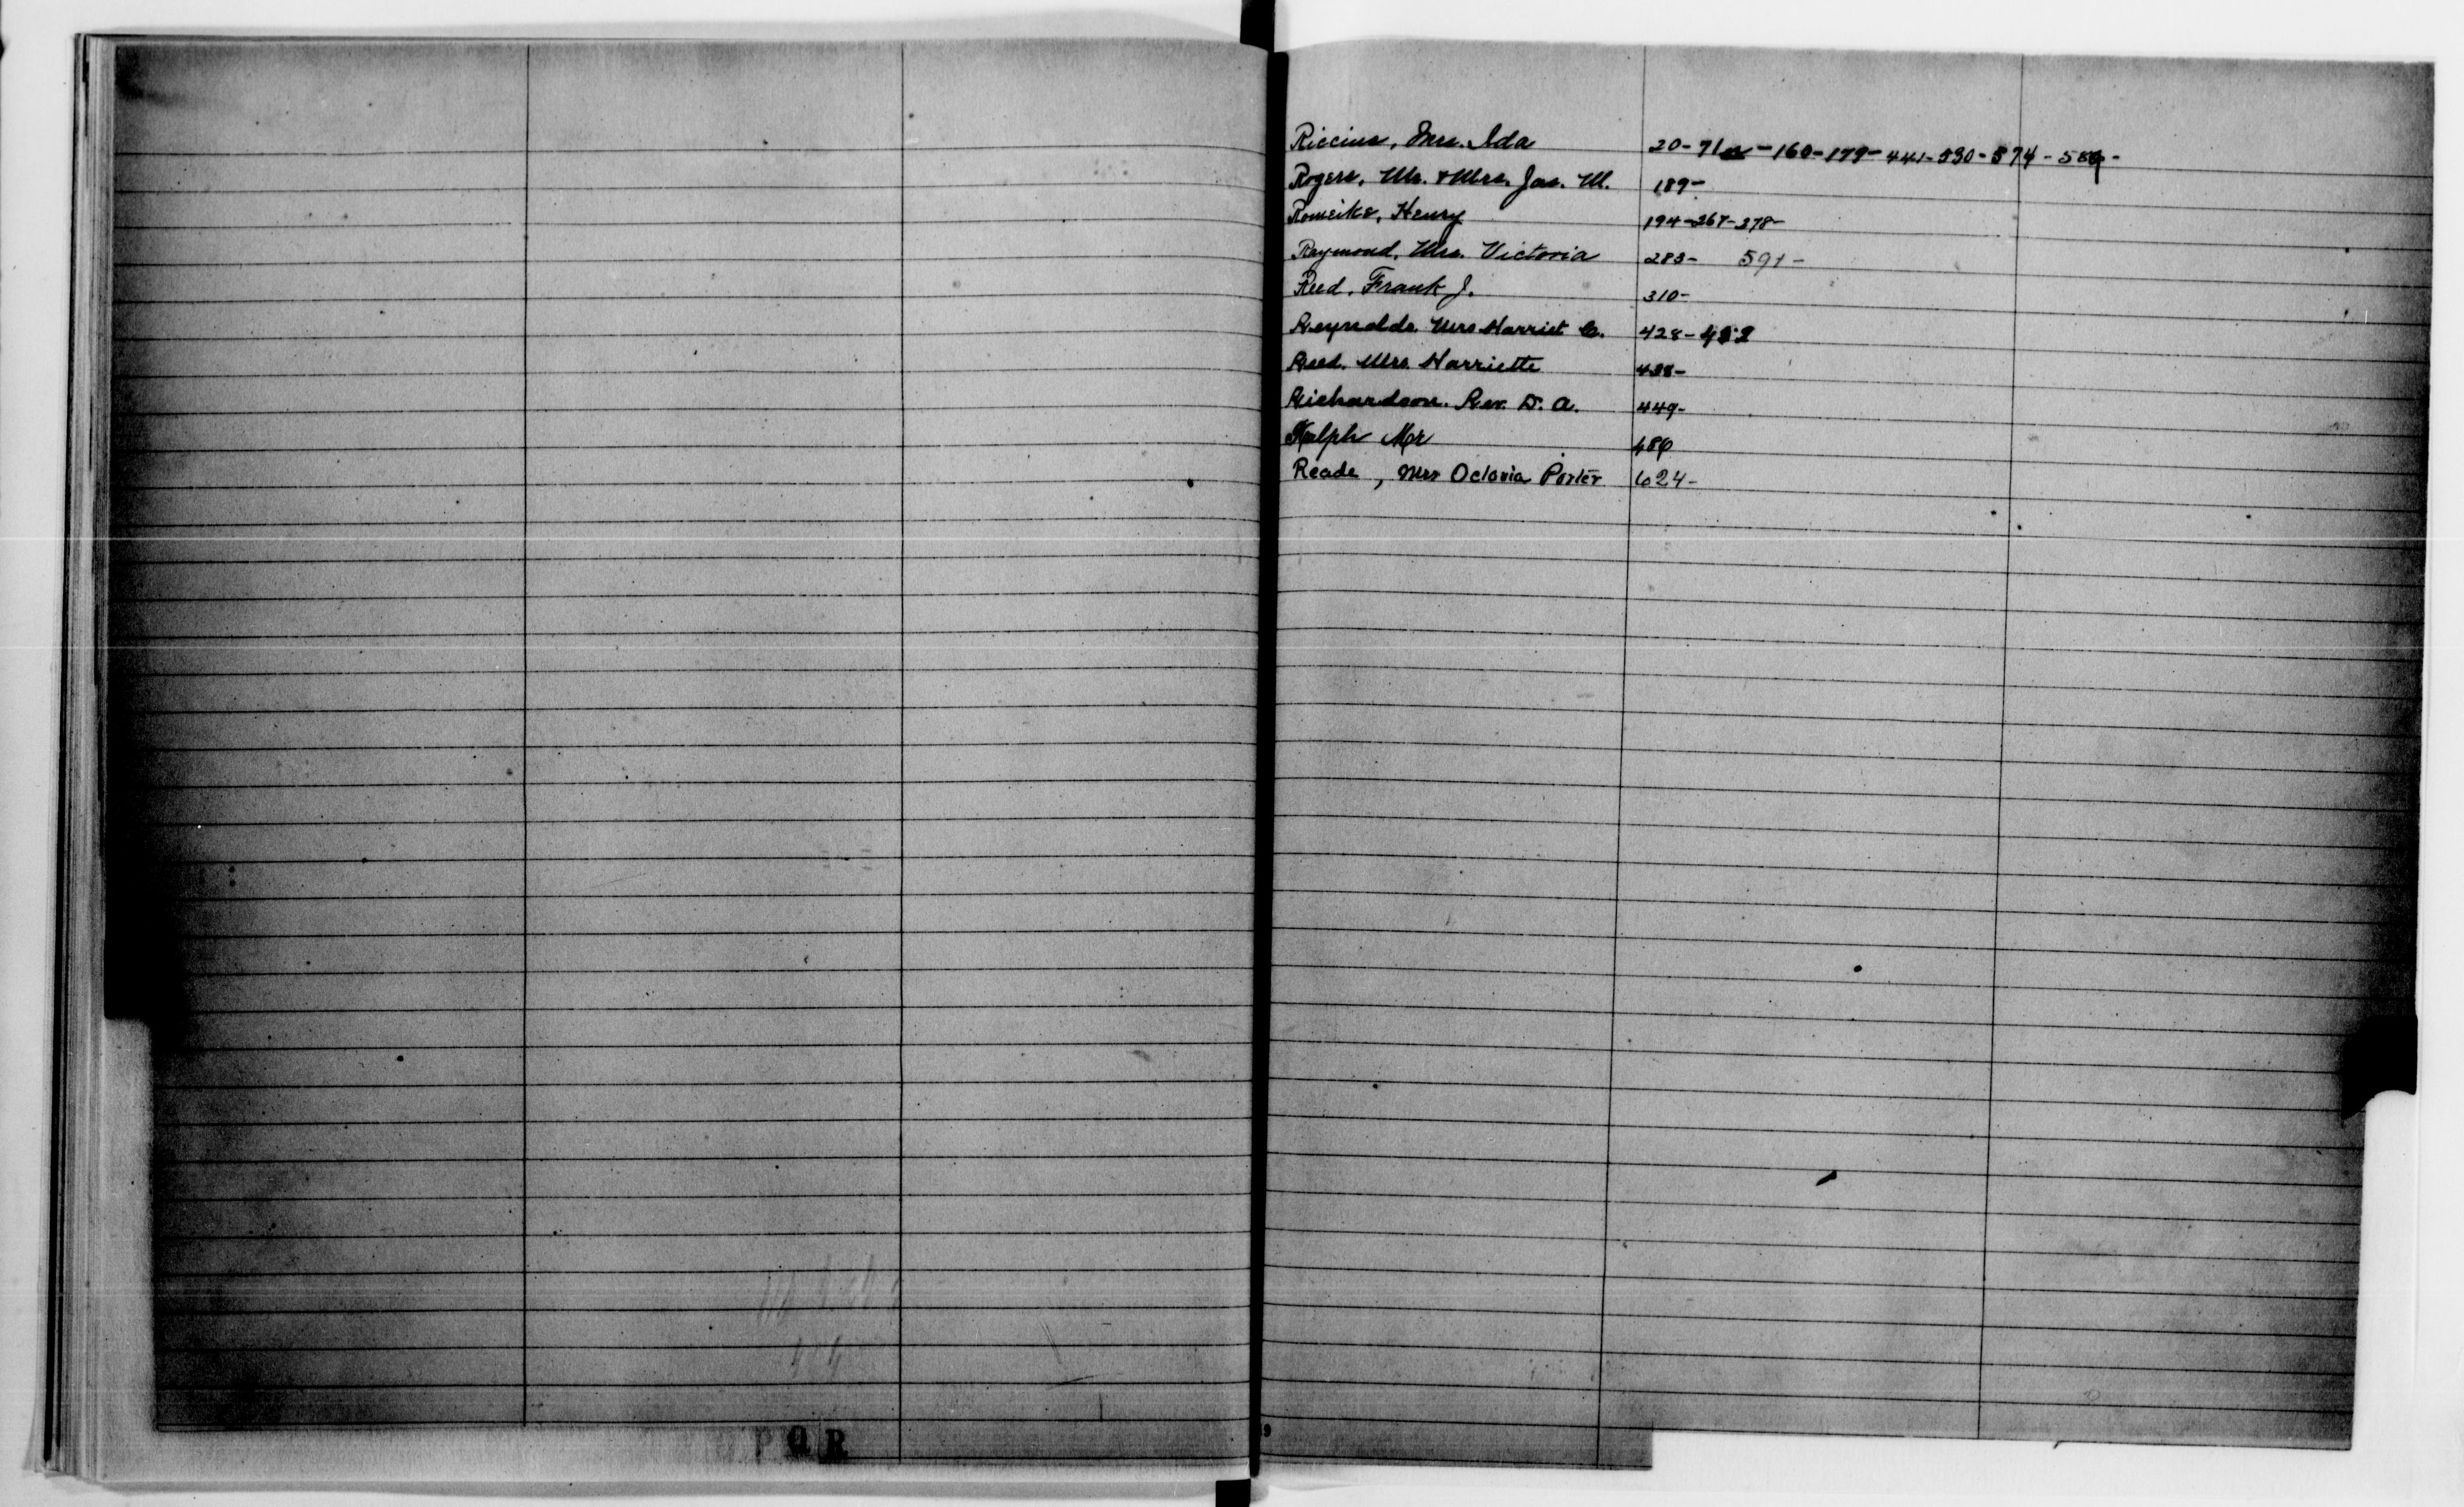 Riccius, Mrs. Ida 20-71 -160-179-441-530-574-
Rogers, Mr. & Mrs. Jas. M. 189-
Romeike, Henry 194-267-278-
Raymond, Mrs. Victoria 283- 591-
Reed, Frank J. 310-
Reynolds. Mrs Harriet C. 428-
Reed. Mrs. Harriette
Richardson. Rev. D. A. 449-
Ralph Mr 486
Reade, Mrs Octavia Porter 624-
P Q R